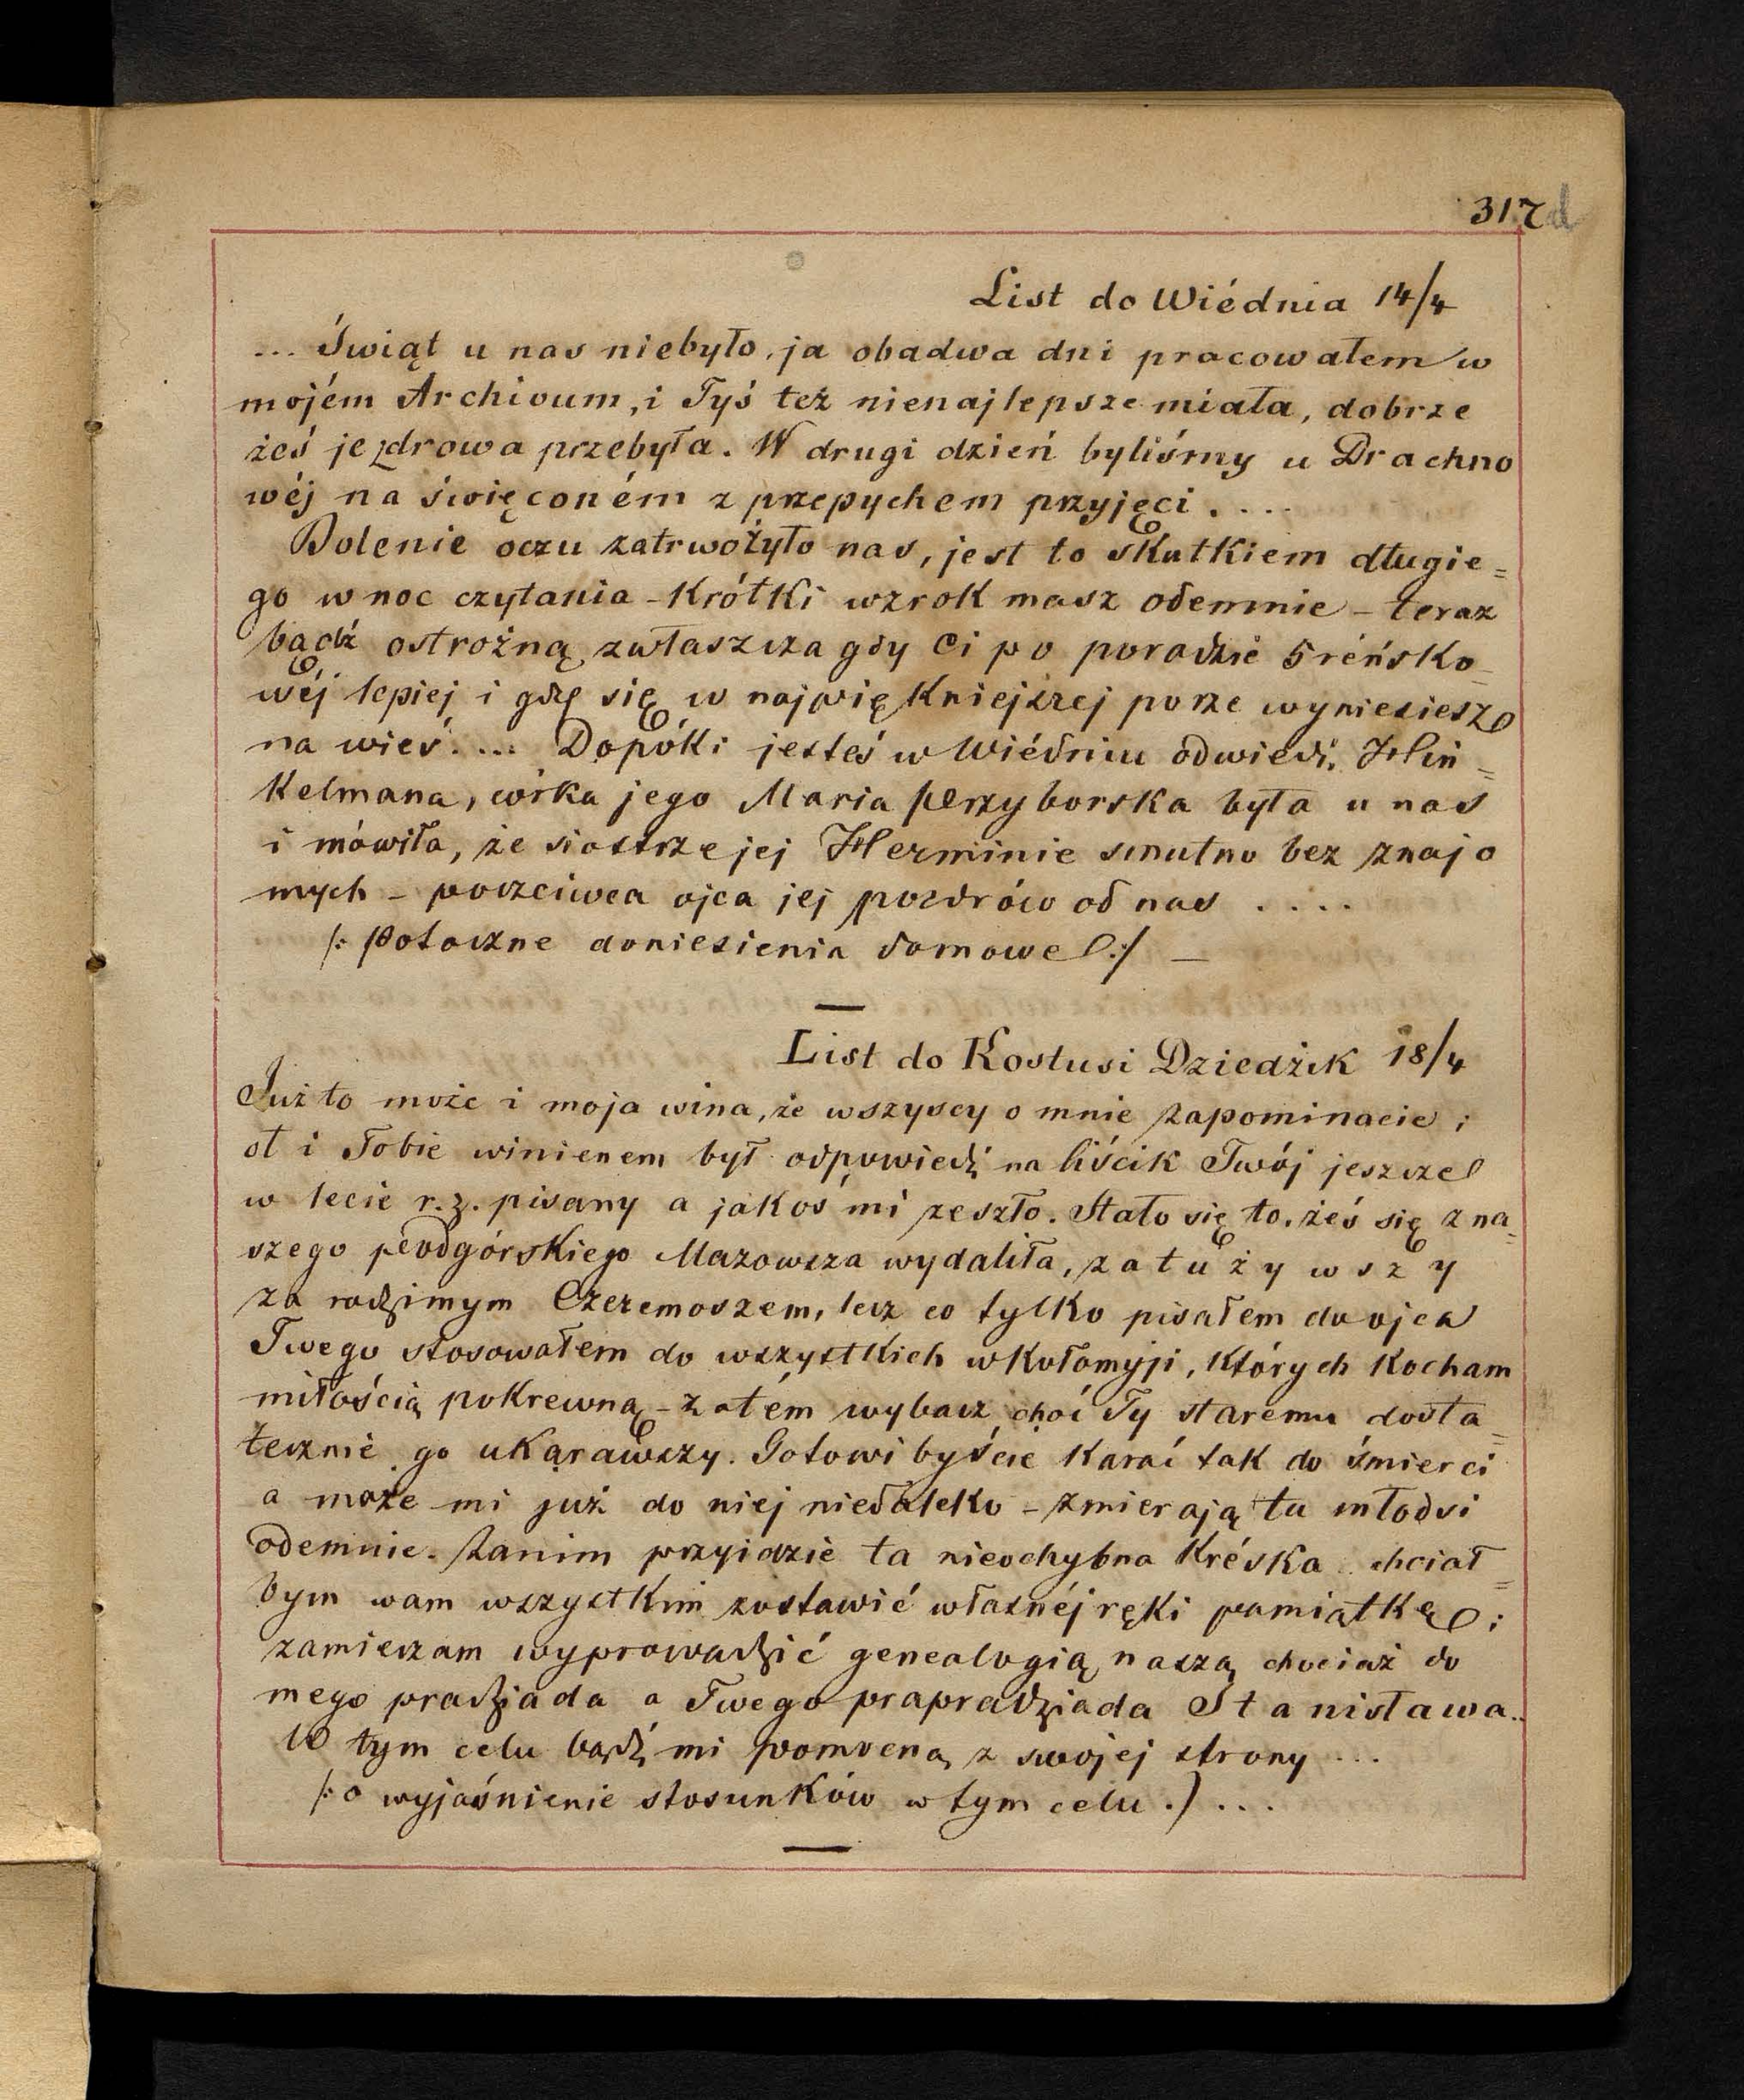 317 d
List do Wiédnia 14/4
... Świąt u nas niebyło, ja obadwa dni pracowałem w
mojém Archivum, i Tyś też nienajlepsze miała, dobrze
żeś je zdrowa przebyła. W drugi dzień byliśmy u Drachno
wéj na święconém z przepychem przyjęci ....
Bolenie oczu zatrwożyło nas, jest to skutkiem długie=
go w noc czytania - krótki wzrok masz odemnie - teraz
bądź ostrożną, zwłaszcza gdy Ci po poradzie Sréńsko_
wéj lepiej i gdy się w najpiękniejszej porze wyniesiesz
na wieś.... Dopóki jesteś w Wiédniu odwiedź, Hin=
kelmana, córka jego Maria Przyborska była u nas
i mówiła, że siostrze jej Herminie smutno bez znajo
mych - poczciwca ojca jej pozdrów od nas ....
/: Potoczne doniesienia domowe :/ —
List do Kostusi Dziedzic 18/4
Już to może i moja wina, że wszyscy o mnie zapominacie ;
ot i Tobie winienem był odpowiedź na liścik Twój jeszcze
w lecie r. z. pisany a jakoś mi zeszło. Stało się to, żeś się z na=
szego podgórskiego Mazowsza wydaliła, zatużywszy
za rodzimym Czeremoszem, lecz co tylko pisałem do ojca
Twego stosowałem do wszystkich w Kołomyji, których kocham
miłością pokrewną - zatém wybacz choć Ty staremu dosta=
tecznie go ukarawszy. Gotowi byście karać tak do śmierci
a może mi już do niej niedaleko - zmierają tu młodsi
odemnie. Zanim przyidzie ta nieochybna kréska chciał=
bym wam wszystkim zostawić własnéj ręki pamiątkę ;
zamierzam wyprowadzić genealogią naszą chociaż do
mego pradziada a Twego prapradziada Stanisława..
W tym celu bądź mi pomocną z swojej strony ...
/: o wyjaśnienie stosunków w tym celu .) ...